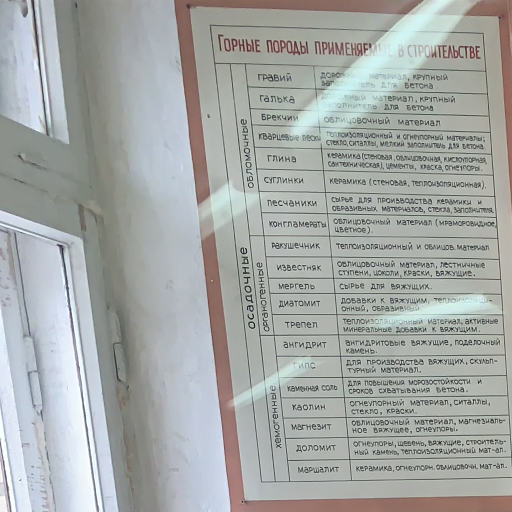 Горные породы применяемые в строительстве
осадочные
обломочные
гравий
дорожный материал, крупный
заполнитель для бетона
галька
материал, крупный
заполнитель для бетона
брекчии
облицовочный материал
кварцевые пески
теплоизоляционный и огнеупорный материалы;
стекло, ситаллы, мелкий заполнитель для бетона.
глина
керамика (стеновая, облицовочная, кислотоупорная,
сантехническая), цементы, краска, огнеупоры.
суглинки
керамика (стеновая, теплоизоляционная).
песчаники
сырье для производства керамики и
абразивных материалов, стекла, заполнителя.
конгломераты
облицовочный материал (мраморовидное,
цветное).
органогенные
ракушечник
теплоизоляционный и облицов. материал
известняк
облицовочный материал, лестничные
ступени, цоколи, краски, вяжущие.
мергель
сырье для вяжущих.
диатомит
добавки к вяжущим, теплоизоляци-
онный, образивный
трепел
теплоизоляционный материал, активные
минеральные добавки к вяжущим.
хемогенные
ангидрит
ангидритовые вяжущие, поделочный
камень.
гипс
для производства вяжущих, скульп-
турный материал.
каменная соль
для повышения морозостойкости и
сроков схватывания бетона.
каолин
огнеупорный материал, ситаллы,
стекло, краски.
магнезит
облицовочный материал, магнезиаль-
ное вяжущее, огнеупоры.
доломит
огнеупоры, щебень, вяжущие, строитель-
ный камень, теплоизоляционный мат-ал.
маршалит
керамика, огнеупорн. облицовочн. мат-ал.